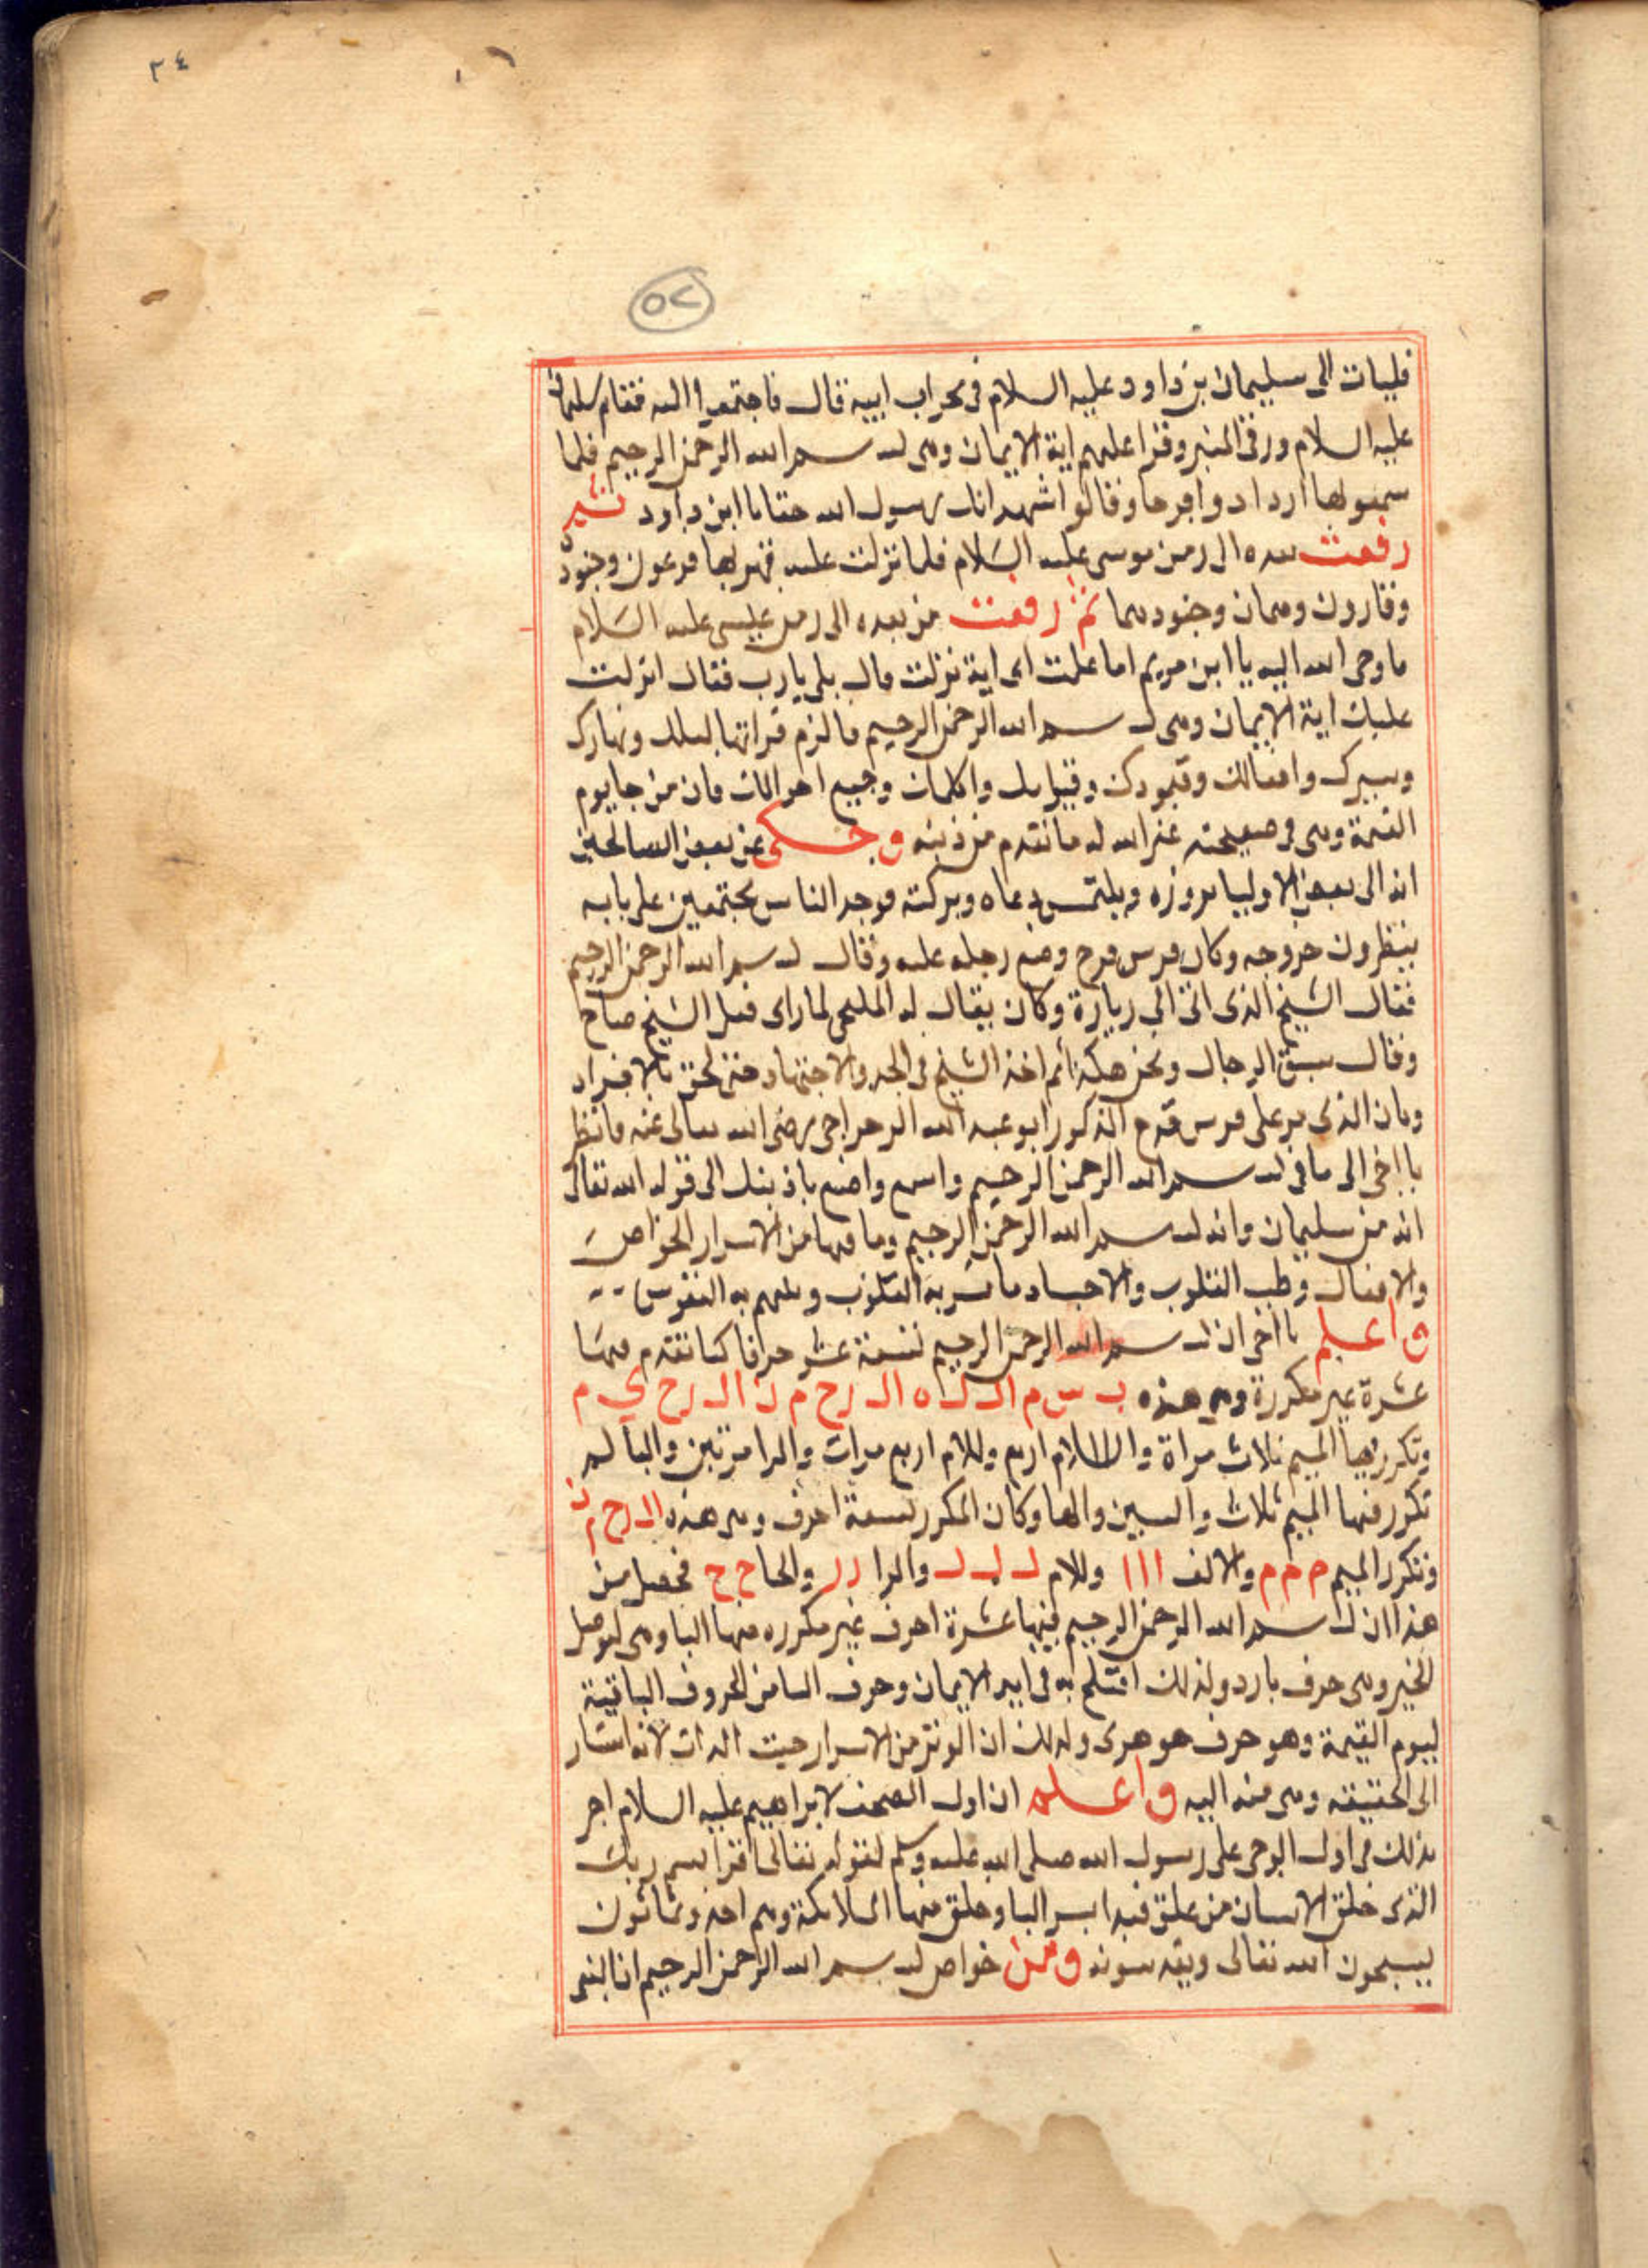 ٣٤
٥٢
فليات الى سليمان بن داود عليه السلام فى محراب ابيه قال فاجتمعوا اليه فقام سليمان
عليه السلام ورقى المنبر وقرا عليهم اية الايمان وهى بسم الله الرحمن الرحيم فلما
سمعوها ازدادوا فرحا وقالوا نشهد انك رسول الله حقا يا ابن داود ثم
رفعت بعده الى زمن موسى عليه السلام فلما نزلت عليه قهر بها فرعون وجنوده
وقارون وهمان وجنودهما ثم رفعت من بعده الى زمن عيسى عليه السلام
فاوحى الله اليه يا ابن مريم اما علمت اى اية نزلت قال بلى يارب فقال انزلت
عليك اية الايمان وهى بسم الله الرحمن الرحيم فالزم قراتها ليلك ونهارك
وسيرك وافعالك وقعودك وقيامك واكلك وجميع احوالك فان من جا يوم
القيمة وهى فى صحيفته غفر الله له ما تقدم من ذنبه وحكى عن بعض الصالحين
انه الى بعض الاوليا يزوره ويلتمس دعاه وبركته فوجد الناس مجتمعين على بابه
ينظرون خروجه وكان فرس فرح وضع رجله عليه وقال بسم الله الرحمن الرحيم
فقال الشيخ الذى اتى الى زيارة وكان يقال له لما راى فعل الشيخ صاح
وقال سبق الرجال ونحن هكذا ثم اخذ الشيخ فى الجد والاجتهاد حتى لحق بالافراد
وكان الذى مر على فرس قدح المذكور ابو عبد الله رضى الله تعالى عنه فانظر
يا اخى الى ما فى بسم الله الرحمن الرحيم واسمع واصنع باذنيك الى قوله الله تعالى
انه من سليمان وانه بسم الله الرحمن الرحيم وما فيها من الاسرار الخواص
والافعال وطب القلوب والاجساد ما تسر به القلوب وتلهم به النفوس
واعلم يا اخى ان بسم الله الرحمن الرحيم تسعة عشر حرفا كما تقدم فيها
عشرة غير مكررة وهى هذه ب س م ا ل ل ه ا ل ر ح م ن ا ل ر ح ي م
وتكرر فيها الميم ثلاث مراة واللام اربع وللام اربع مرات والرا مرتين والبا لم
تكرر فيها الميم ثلاث والسين والها وكان المكرر تسعة احرف وهى هذه ا ل ر ح م ن
وتكرر الميم م م م والالف ا ا ا وللام ل ل ل والرا ر ر والحا ح ح فحصل من
هذا ان بسم الله الرحمن الرحيم فيها عشرة احرف غير مكرره منها البا وهى
الخير وهى حرف بارد ولذلك افتتح به فى اية الايمان وحرف البا من الحروف الباقية
ليوم القيمة وهو حرف جوهرى ولذلك ان الوتر من الاسرار حيث الذات لانه اشار
الى الحقيقه وهى منه اليه واعلم ان اول الصحف لابراهيم عليه السلام اجر
بذلك فى اول الوحى على رسول الله صلى الله عليه وسلم لقوله تعالى اقرا بسم ربك
الذى خلق الانسان من علق فبدا بسر البا وخلق منها الملائكة وهم احد وثمانون
يسبحون الله تعالى ويقدسونه ومن خواص بسم الله الرحمن الرحيم